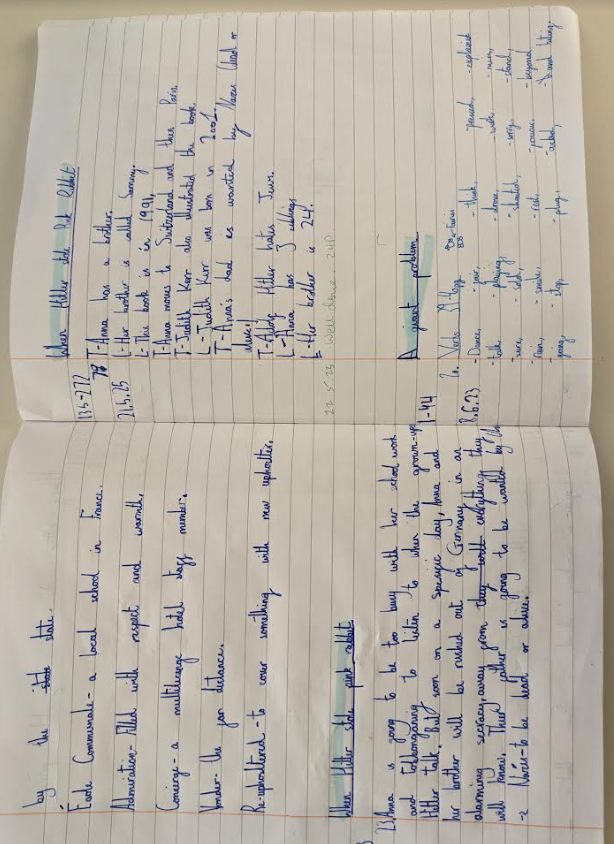 by the ~~state~~ state.
École Communale - a local school in France.
Admiration - Filled with respect and warmth.
Concierge - a multilinguage hotel staff member.
Yonder - the far distance.
Re-upholstered - to cover something with new upholster.
When Hitler stole pink rabbit
23 Anna is going to be too busy with her school work
and tobbonganing to listen to when the grown-ups
Hitler talk. But soon on a specific day, Anna and
her brother will be rushed out of Germany in an
alarming secracy, away from ~~they well~~ everything they
will know. Their father is going to be wanted by th
-e Nazis - to be dead or alive.
When Hitler stole Pink Rabbit
135-272
T - Anna has a brother.
21.5.25 L - Her brother is called Sammy.
L - This book is in 1991,
T - Anna moves to Switzerland and then Paris.
T - Judith Kerr also illustrated the book.
L - Judith Kerr was born in 2001.
T - Anna's dad is wanted by Nazis (dead or
alive)
T - Adolf Hitler hates Jews.
L - Anna has 3 siblings
L - Her brother is 24.
Well done.
A giant problem
1-44
8.6.23
- Dance, - pair, - think, - pleased, - explained
- talk, - playing, - done, - walk, - men,
- sure, - told, - shouted, - sing, - stand,
- run, - smile, - eat, - power, - beyond
- going, - stop, - play, - asked, - and biting.